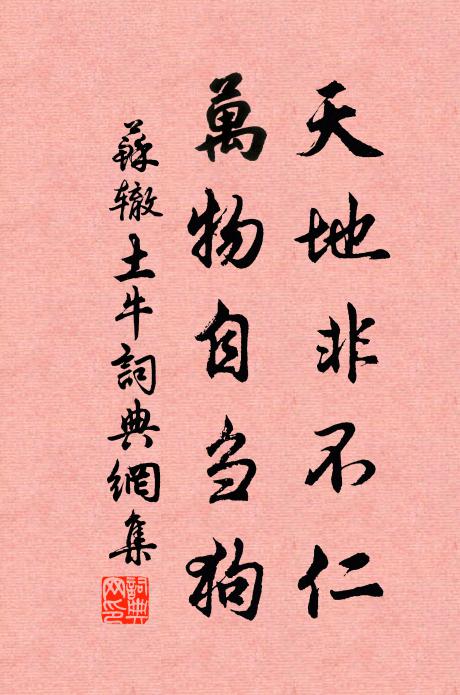 天地非不仁
萬物自刍狗
蘇辙土牛詞典網集
詞典网印